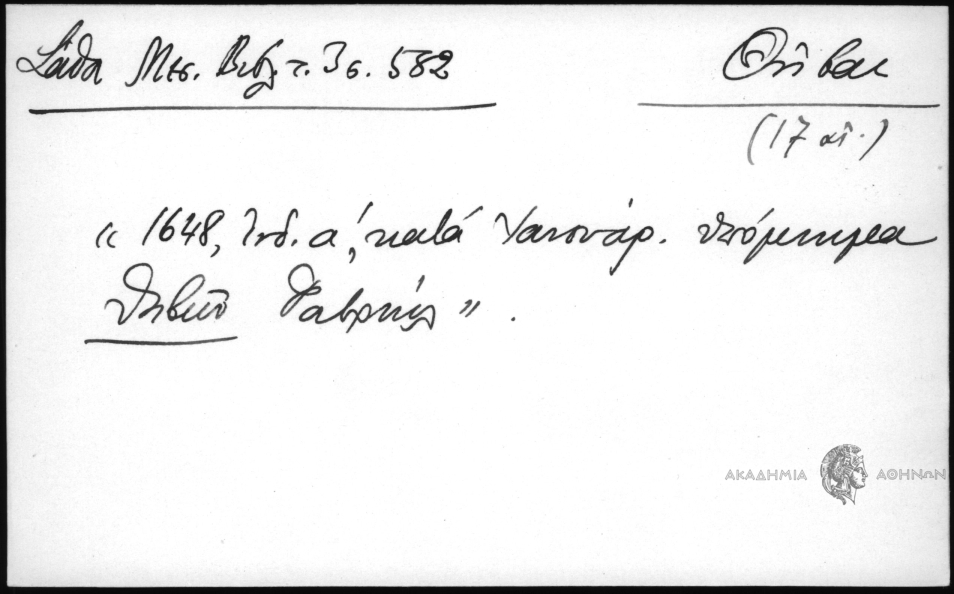 Σάθα Μεσ. Βιβλ. τ. 3 σ. 582
Θῆβαι
(17 αἰ.)
« 1648, ἰνδ. α΄, κατὰ Ἰανουάρ. ὑπόμνημα
Θηβῶν Γαβριήλ » .
ΑΚΑΔΗΜΙΑ ΑΘΗΝΩΝ